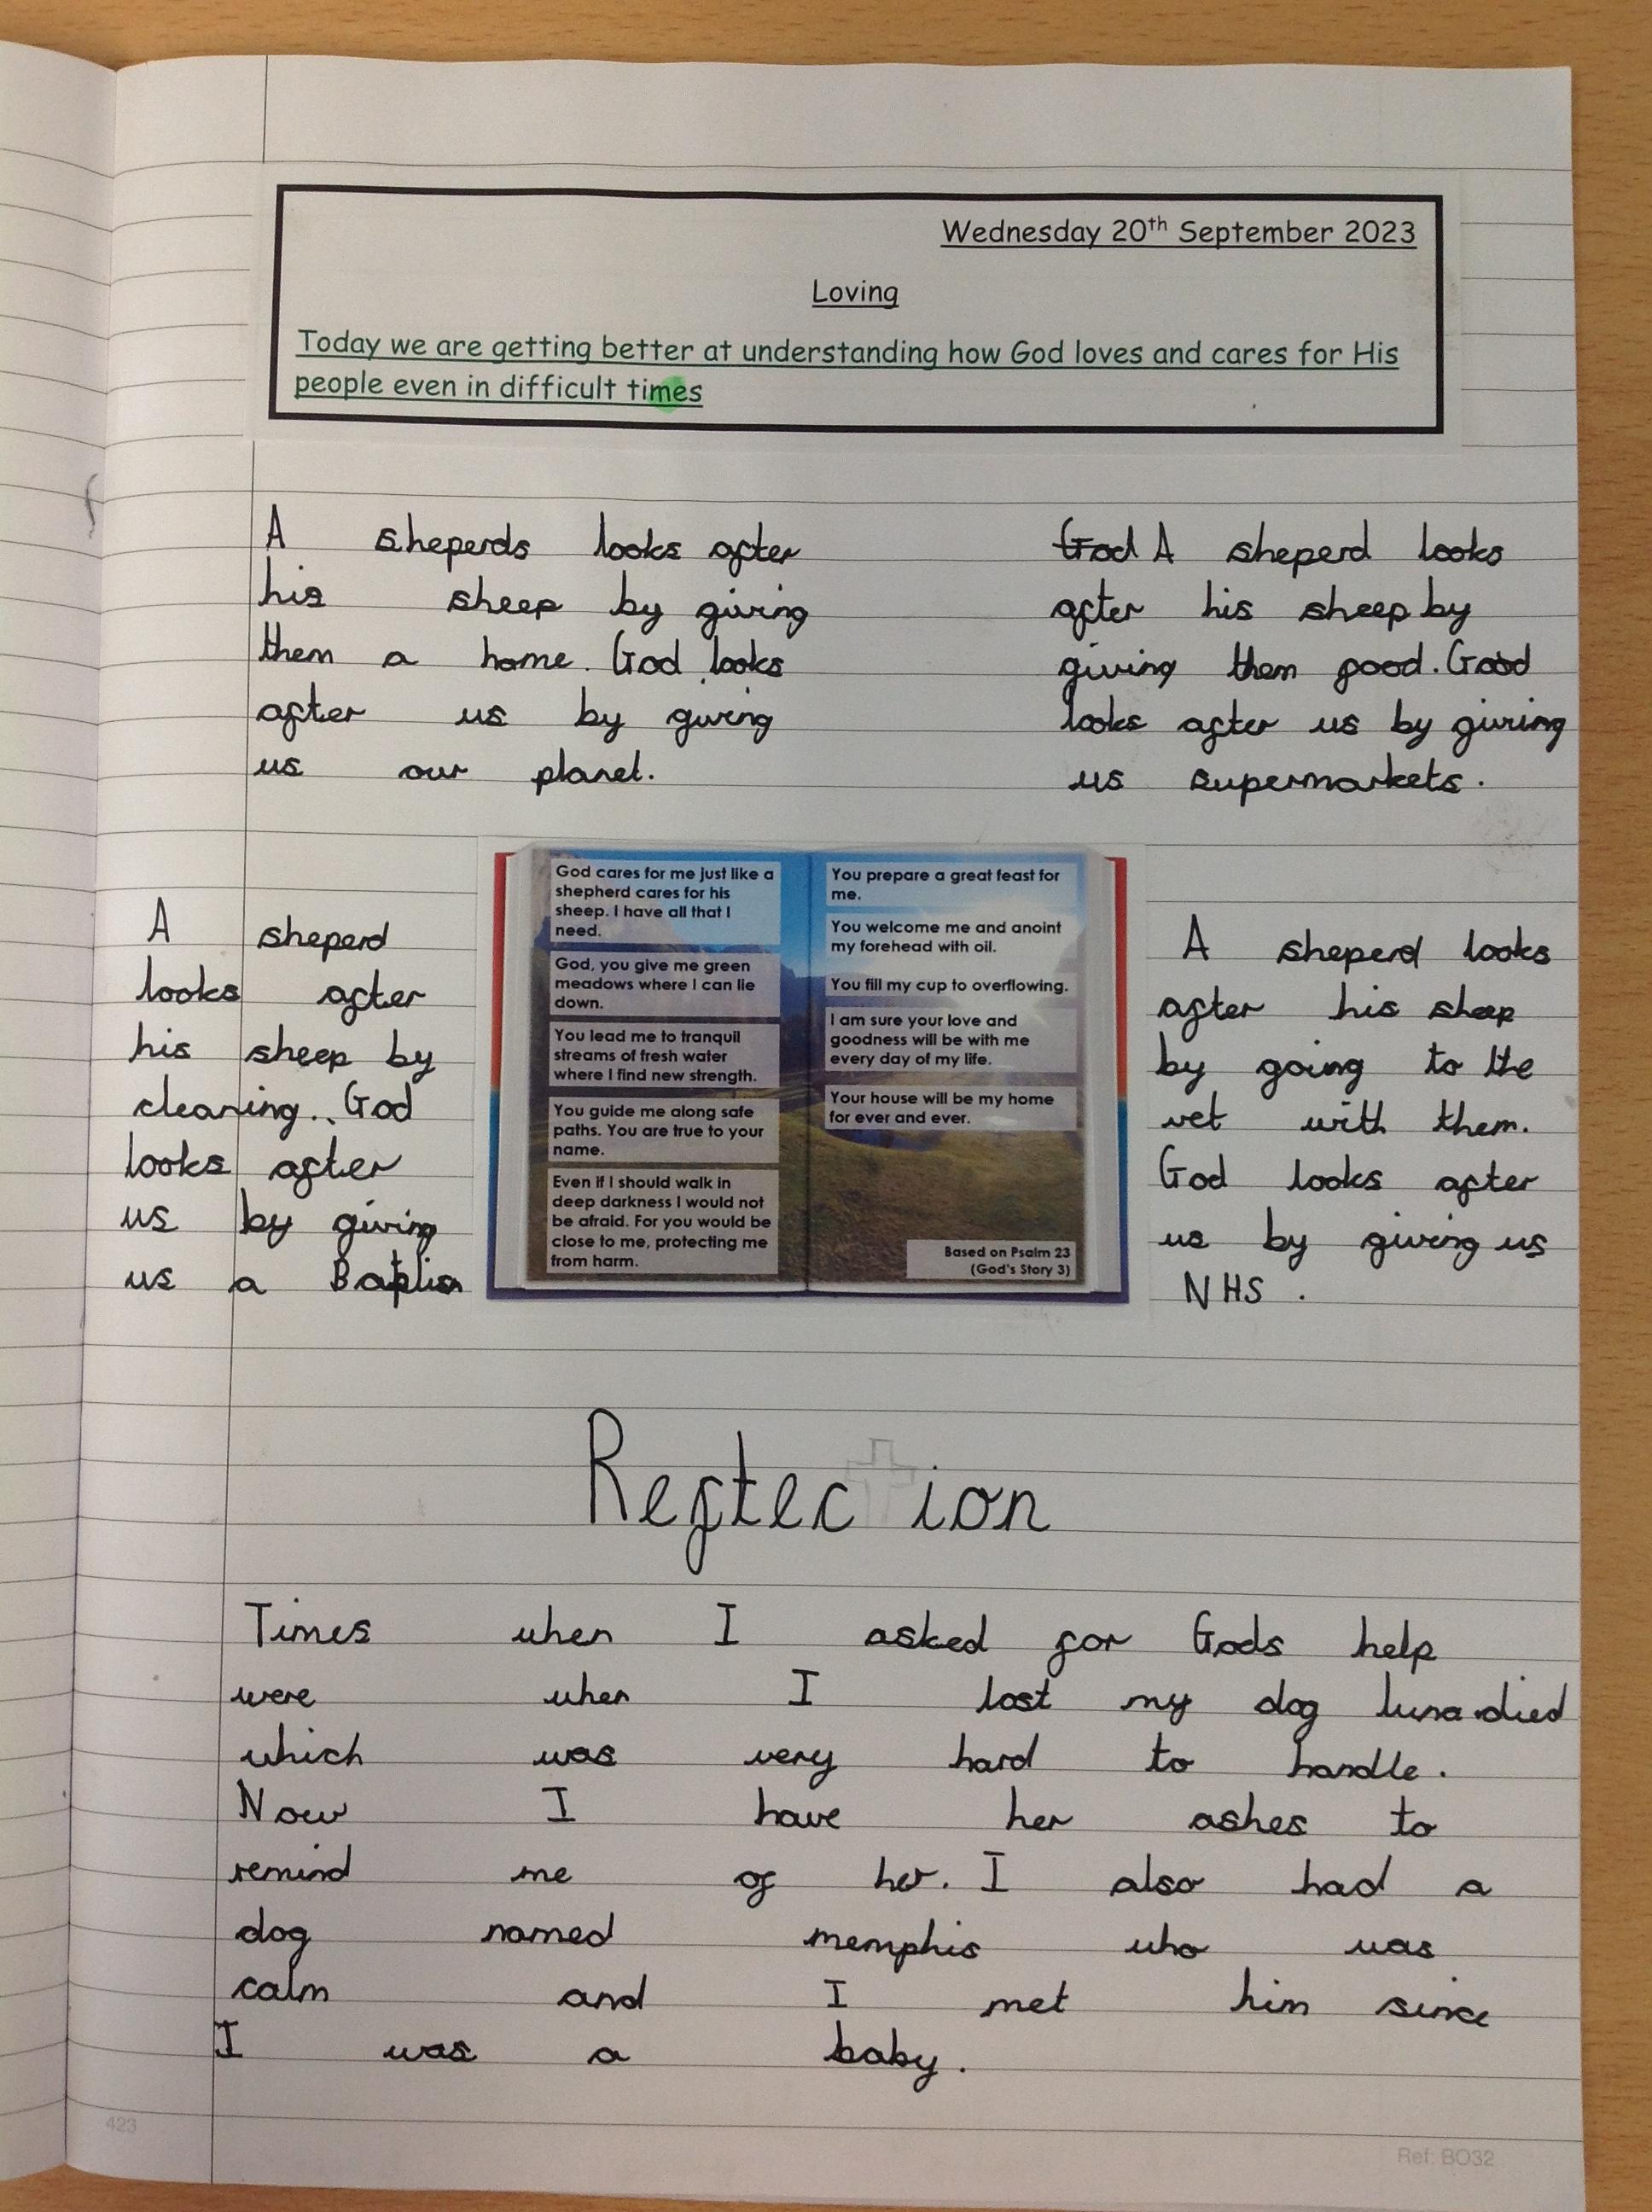 Wednesday 20th September 2023
Loving
Today we are getting better at understanding how God loves and cares for His
people even in difficult times
A sheperds looks after
his sheep by giving
them a home. God looks
after us by giving
us our planet.
God A sheperd looks
after his sheep by
giving them food. God
looks after us by giving
us supermarkets.
A sheperd
looks after
his sheep by
cleaning.. God
looks after
us by giving
us a
God cares for me just like a
shepherd cares for his
sheep. I have all that I
need.
God, you give me green
meadows where I can lie
down.
You lead me to tranquil
streams of fresh water
where I find new strength.
You guide me along safe
paths. You are true to your
name.
Even if I should walk in
deep darkness I would not
be afraid. For you would be
close to me, protecting me
from harm.
You prepare a great feast for
me.
You welcome me and anoint
my forehead with oil.
You fill my cup to overflowing.
I am sure your love and
goodness will be with me
every day of my life.
Your house will be my home
for ever and ever.
Based on Psalm 23
(God's Story 3)
A sheperd looks
after his sheep
by going to the
vet with them.
God looks after
us by giving us
NHS .
Reflection
Times when I asked for Gods help
were when I lost my dog luna died
which was very hard to handle.
Now I have her ashes to
remind me of her. I also had a
dog named memphis who was
calm and I met him since
I was a baby.
423
Ref: BO32